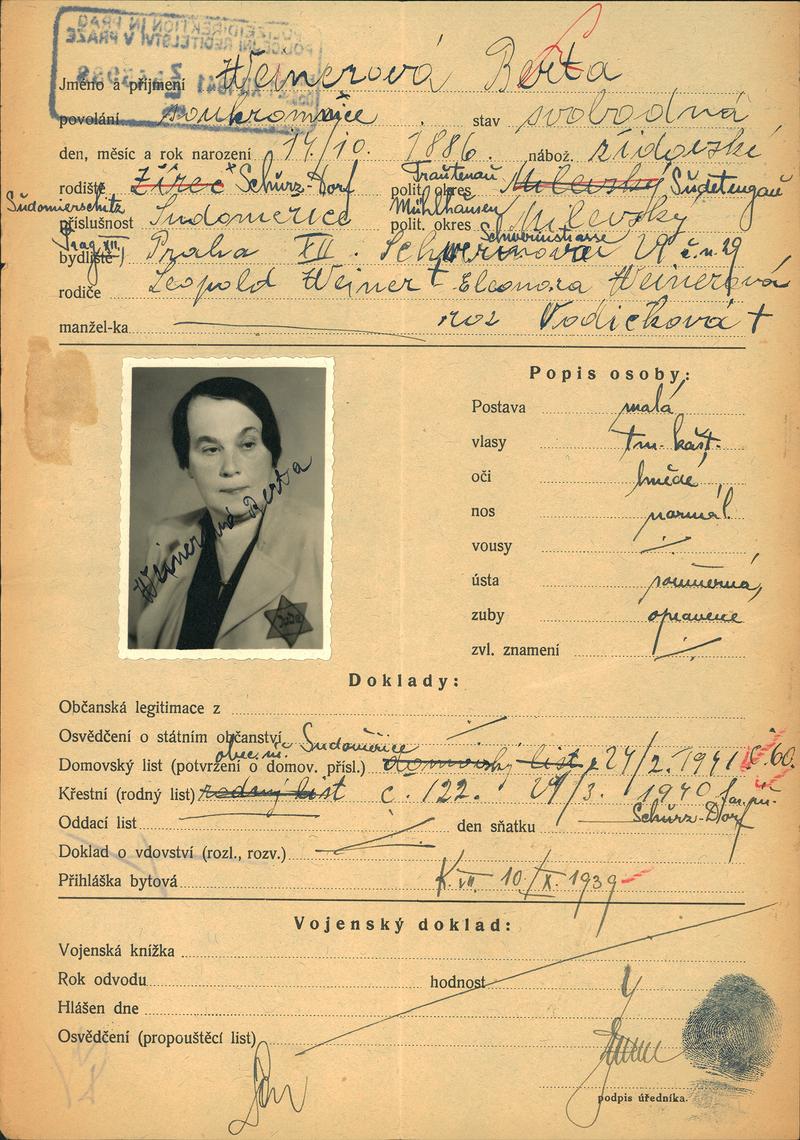 POLIZEIDIREKTION IN PRAG
POLICEJNÍ ŘEDITELSTVÍ V PRAZE
Jméno a příjmění Weinerová Berta
povolání soukromnice stav svobodná
den, měsíc a rok narození 14/10. 1886. nábož. židovské
Trautenau
rodiště Žíreč + Schurz-Dorf polit. okres Milevský Sudetengau
Sudomierschitz Mühlhausen
příslušnost Sudoměřice polit. okres Milevsky
Prag VII, Schwerinstrasse
bydliště Praha VII. Schwerinova 29 č.n. 29
rodiče Leopold Weiner + Eleonora Weinerová
manžel-ka roz Vodičková +
Popis osoby:
Postava malá
vlasy tm. kašt.
oči hnědé
nos normál.
vousy
ústa souměrná
zuby opravené
zvl. znamení
Weinerová Berta
Jude
Doklady:
Občanská legitimace z
Osvědčení o státním občanství
Sudoměřice
Domovský list (potvrzení o domov. přísl.) domovský list 24/2. 1941 č. 60.
Křestní (rodný list) rodný list č. 122. 29/3. 1940 far. úř.
Schurz-Dorf
Oddací list den sňatku
Doklad o vdovství (rozl., rozv.)
Přihláška bytová K. VII. 10/X. 1939
Vojenský doklad:
Vojenská knížka
Rok odvodu hodnost
Hlášen dne
Osvědčení (propouštěcí list)
podpis úředníka.